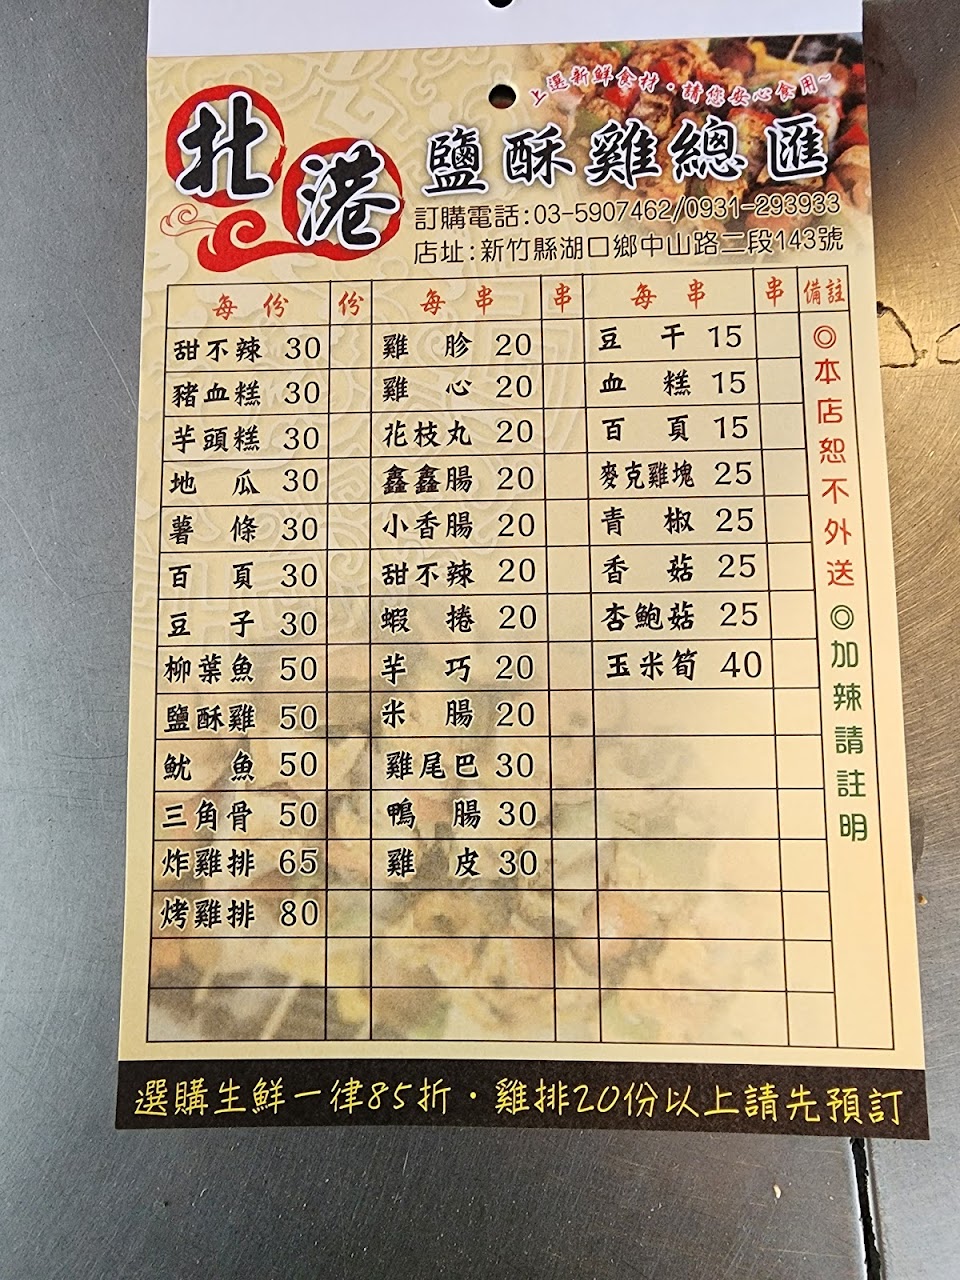 上選新鮮食材・請您安心食用~
北港
鹽酥雞總匯
訂購電話:03-5907462/0931-293933
店址:新竹縣湖口鄉中山路二段143號
每份 份 每串 串 每串 串 備註
甜不辣 30 雞胗 20 豆干 15
豬血糕 30 雞心 20 血糕 15
芋頭糕 30 花枝丸 20 百頁 15
地瓜 30 鑫鑫腸 20 麥克雞塊 25
薯條 30 小香腸 20 青椒 25
百頁 30 甜不辣 20 香菇 25
豆子 30 蝦捲 20 杏鮑菇 25
柳葉魚 50 芋巧 20 玉米筍 40
鹽酥雞 50 米腸 20
魷魚 50 雞尾巴 30
三角骨 50 鴨腸 30
炸雞排 65 雞皮 30
烤雞排 80
◎本店恕不外送 ◎加辣請註明
選購生鮮一律85折・雞排20份以上請先預訂